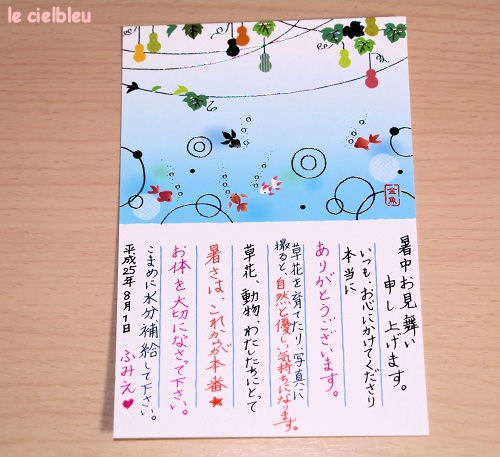 le cielbleu
金魚
暑中お見舞い
申し上げます。
いつも、お心にかけてくださり
本当に
ありがとうございます。
草花を育てたり、写真に
撮ると、自然と優しい気持ちになります。
草花、動物、わたしたちにとって
暑さは、これからが本番★
お体を大切になさって下さい。
こまめに水分補給して下さい。
平成25年8月1日
ふみえ♥